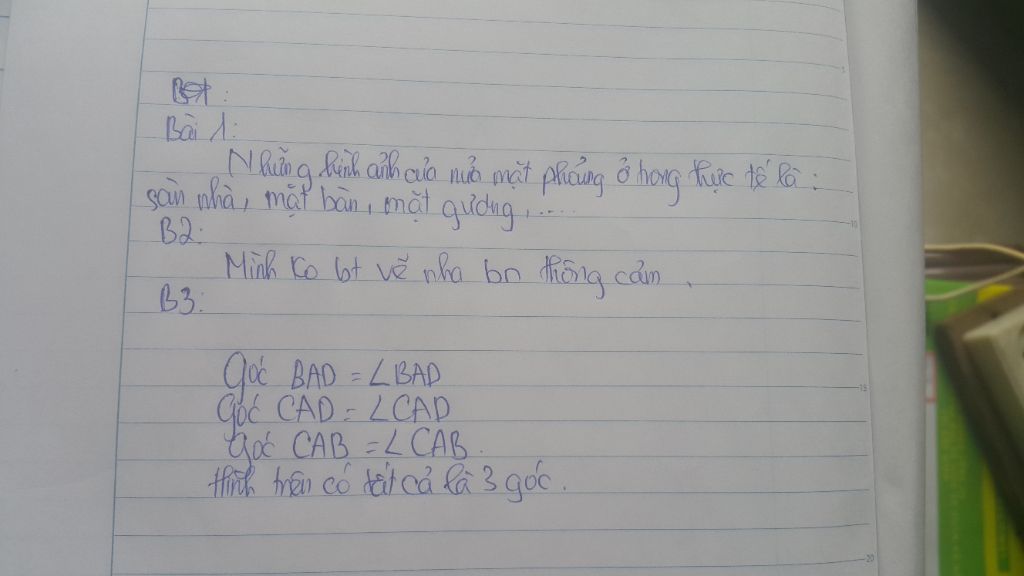 Bài 1:
Những hình ảnh của nửa mặt phẳng ở trong thực tế là:
sàn nhà, mặt bàn, mặt gương,.....
B2:
Mình ko bt vẽ nha bn thông cảm.
B3:
Góc BAD = ∠BAD
Góc CAD = ∠CAD
Góc CAB = ∠CAB.
Hình trên có tất cả là 3 góc.